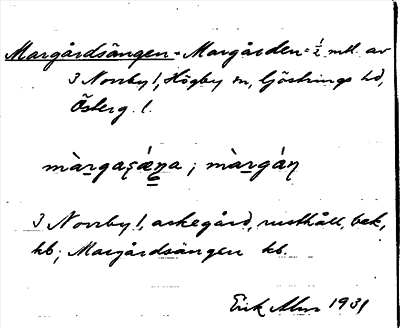 Margårdsängen = Margården = ½ mtl av
3 Norrby /, Högby sn, Göstrings hd,
Österg. l.
màrgaşǽṉa ; màrgáṉ
3 Norrby /, askegård, rusthåll, bek,
kb; Margårdsängen kb.
Erik Alm 1931